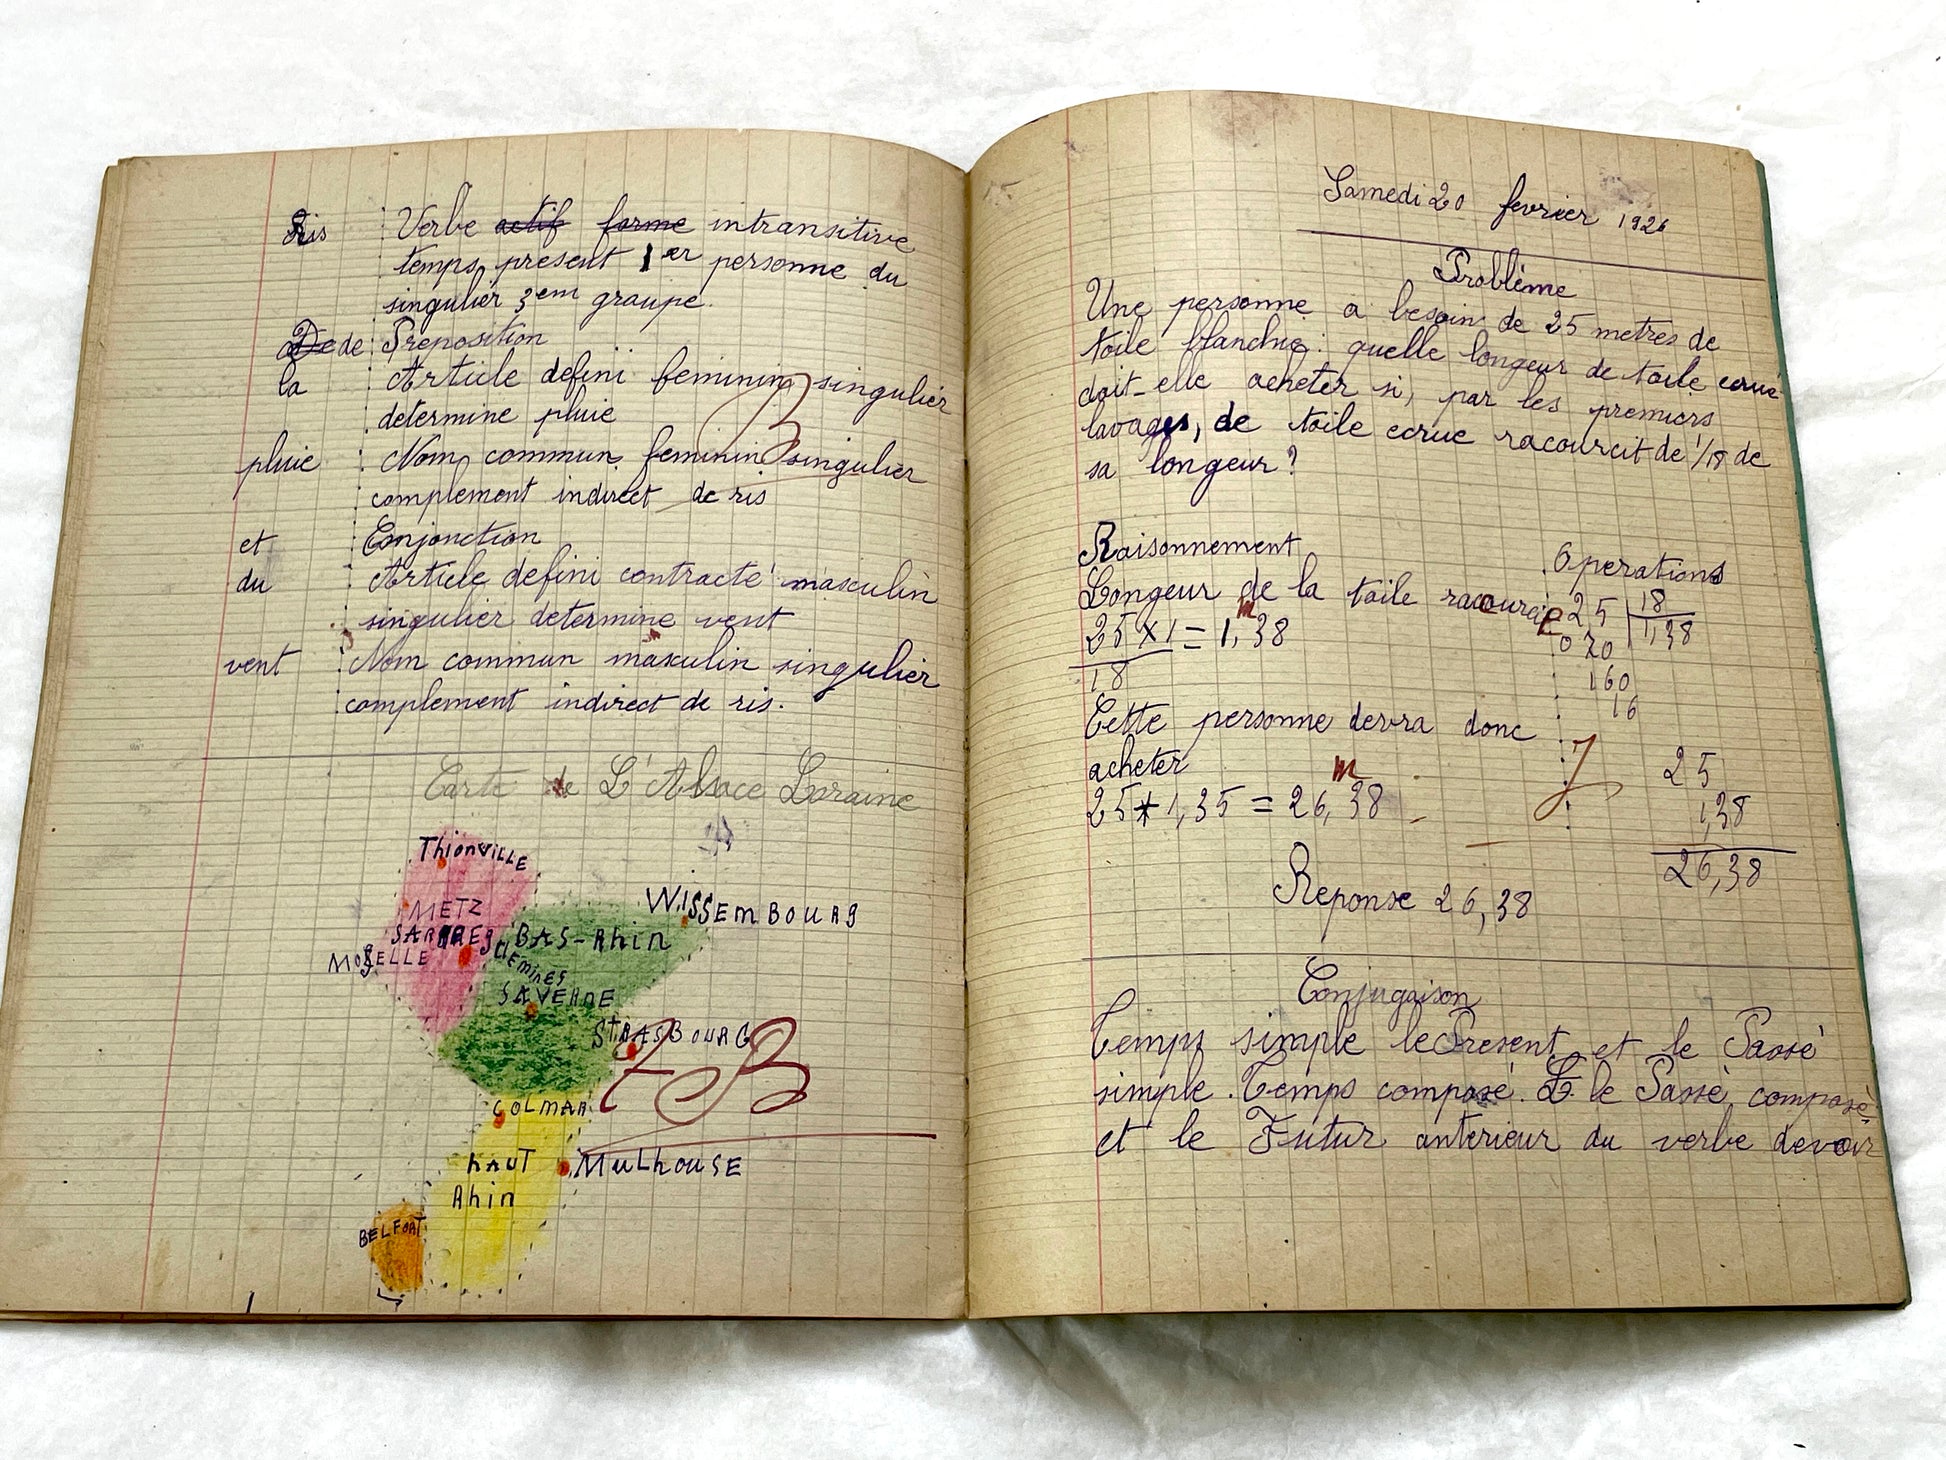 Ris Verbe actif forme intransitive
temps present 1er personne du
singulier 3em groupe.
De de Preposition
la Article defini feminin singulier
determine pluie
pluie Nom commun feminin singulier
complement indirect de ris
et Conjonction
du Article defini contracté masculin
singulier determine vent
vent Nom commun masculin singulier
complement indirect de ris.
Carte de L'Alsace Loraine
Thionville
METZ
WISSEMBOURG
BAS-Rhin
MOSELLE
SAVERNE
StRASBOURG
B
COLMAR
HAUT
Rhin
MuLhouSE
BELFORT
Samedi 20 fevrier 1926
Problème
Une personne a besoin de 25 metres de
toile blanche: quelle longeur de toile ecrue
doit-elle acheter si, par les premiers
lavages, de toile ecrue racourcit de 1/18 de
sa longeur?
Raisonnement
Operations
Longeur de la toile racourcie
25 18
25 x 1 = 1,38
m
18
070 1,38
160
16
Cette personne devra donc
acheter
25 + 1,35 = 26,38
m
25
1,38
26,38
Reponse 26,38
Conjugaison
Temps simple le Present et le Passé
simple. Temps composé. L. le Passé composé
et le Futur anterieur du verbe devoir